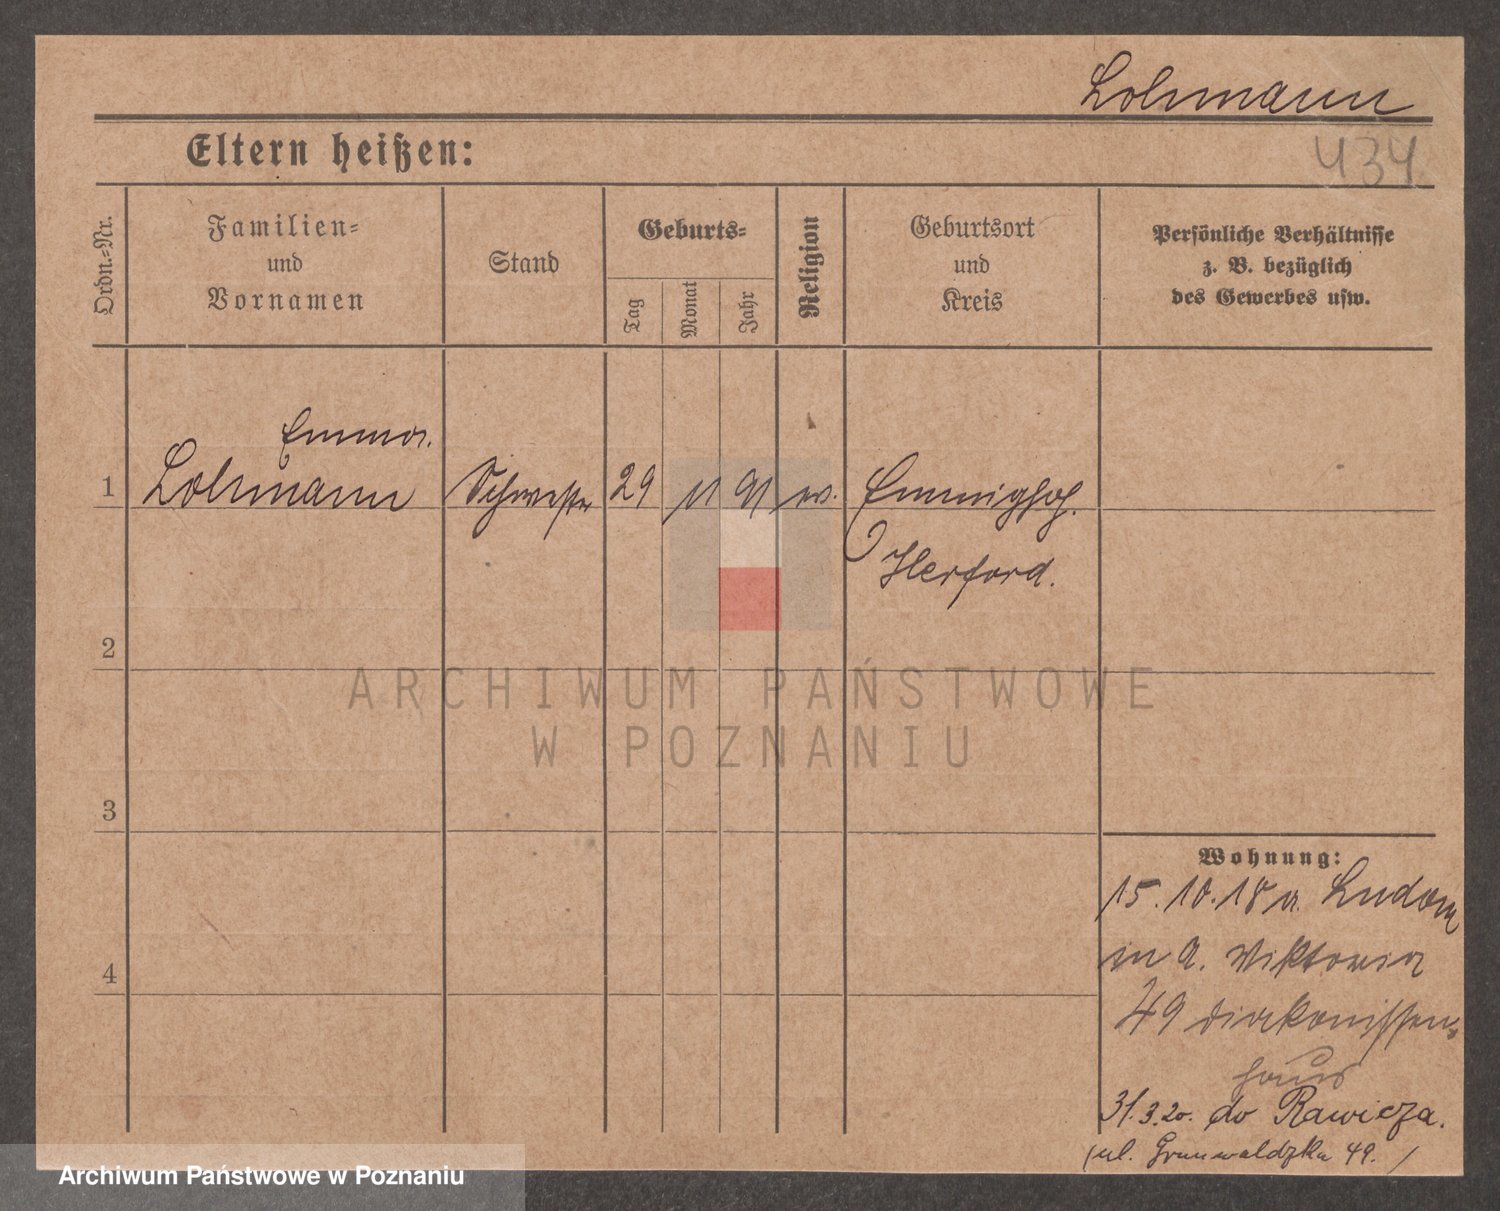 Lohmann
434
Eltern heißen:
Ordn.-Nr.
Familien-
und
Vornamen
Stand
Geburts-
Tag
Monat
Jahr
Religion
Geburtsort
und
Kreis
Persönliche Verhältnisse
z. B. bezüglich
des Gewerbes usw.
Emma
1 Lohmann Schwester 29 11 91 ev.
Herford.
2
3
4
Wohnung:
15.10.18 a. Ludom
in A. Viktoria
49 Diakonissen-
haus
31.3.20. do Rawicza.
(ul. Grunwaldzka 49. /
ARCHIWUM PAŃSTWOWE
W POZNANIU
Archiwum Państwowe w Poznaniu